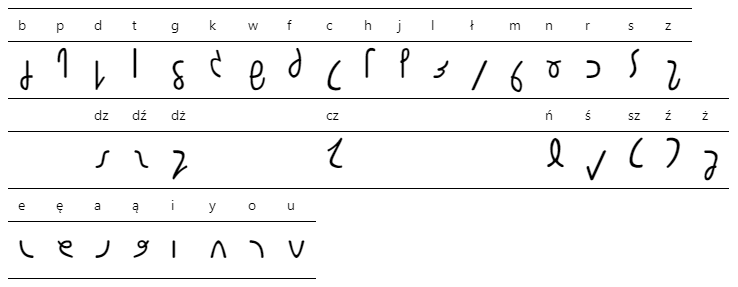 b p d t g k w f c h j l ł m n r s z
dz dź dż cz ń ś sz ź ż
e ę a ą i y o u